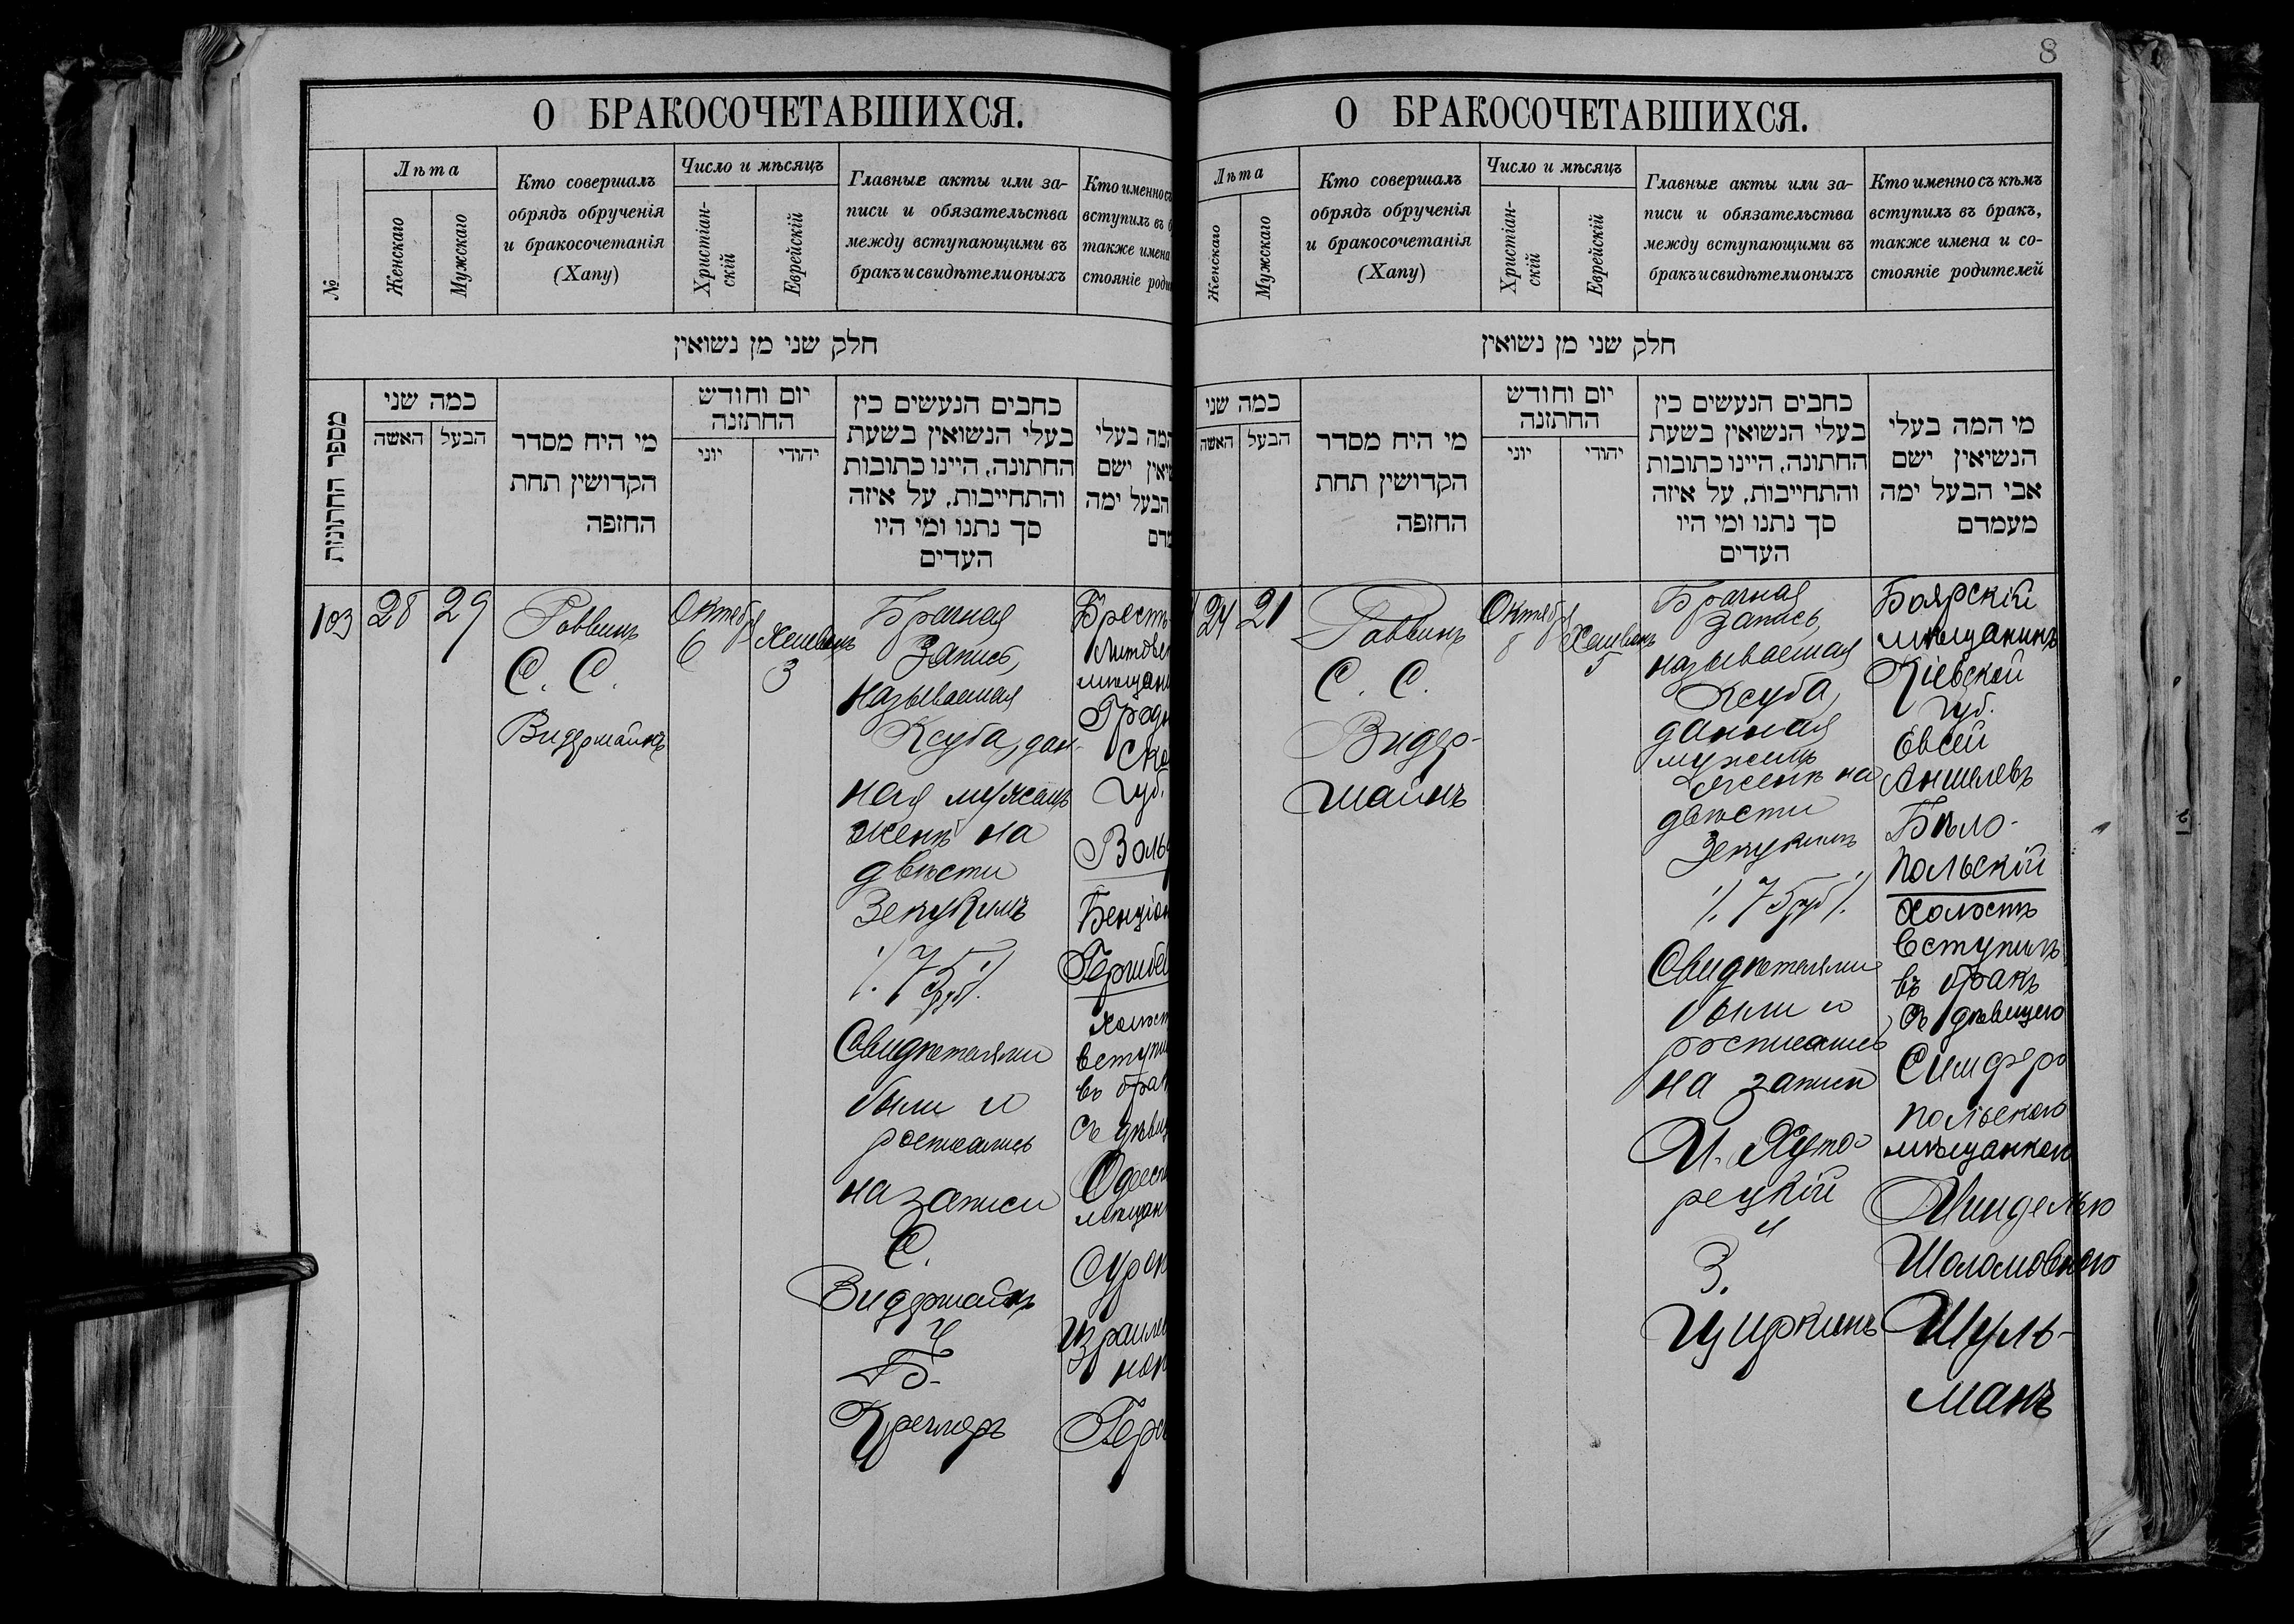 О БРАКОСОЧЕТАВШИХСЯ.
№
Лѣта
Женскаго
Мужскаго
Кто совершалъ
обрядъ обрученія
и бракосочетанія
(Хапу)
Число и мѣсяцъ
Христіан-
скій
Еврейскій
Главные акты или за-
писи и обязательства
между вступающими въ
бракъ и свидѣтели оныхъ
Кто именно съ
вступилъ въ б
также имена
стояніе роди
חלק שני מן נשואין
מספר החתונות
כמה שני
האשה
הבעל
מי היח מסדר
הקדושין תחת
החזפה
יום וחודש
החתזנה
יוני
יהודי
כחבים הנעשים כין
בעלי הנשואין בשעת
החתונה, היינו כתובות
והתחייבות, על איזה
סך נתנו ומי היו
העדים
המה בעלי
שיאין ישם
הבעל ימה
מדם
103
28
29
Раввинъ
С. С.
Видершайнъ
Октябр
6
Хешванъ
3
Брачная
Запись,
называемая
Ксуба, дан-
ная мужемъ
женѣ на
двѣсти
Зекукимъ
/. 75 руб ./
Свидѣтелями
были и
росписались
на записи
С.
Видершайнъ
и
Б.
Кремеръ
Брестъ
Литовс
мѣщани
Гродн
ско
губ.
Воль
Бенціон
Гершбе
холост
вступи
въ брак
съ дѣви
Одесс
мѣщан
Сурон
Израиле
ною
Герш
8
О БРАКОСОЧЕТАВШИХСЯ.
Лѣта
Женскаго
Мужскаго
Кто совершалъ
обрядъ обрученія
и бракосочетанія
(Хапу)
Число и мѣсяцъ
Христіан-
скій
Еврейскій
Главные акты или за-
писи и обязательства
между вступающими въ
бракъ и свидѣтели оныхъ
Кто именно съ кѣмъ
вступилъ въ бракъ,
также имена и со-
стояніе родителей
חלק שני מן נשואין
כמה שני
האשה
הבעל
מי היח מסדר
הקדושין תחת
החזפה
יום וחודש
החתזנה
יוני
יהודי
כחבים הנעשים כין
בעלי הנשואין בשעת
החתונה, היינו כתובות
והתחייבות, על איזה
סך נתנו ומי היו
העדים
מי המה בעלי
הנשיאין ישם
אבי הבעל ימה
מעמדם
24
21
Раввинъ
С. С.
Видер-
шайнъ
Октябр
8
Хешванъ
5
Брачная
Запись,
называемая
Ксуба,
данная
мужемъ
женѣ на
двѣсти
Зекукимъ
/. 75 руб ./
Свидѣтелями
были и
росписались
на записи
И. Хуто-
рецкій
и
З.
Циркинъ
Боярскій
мѣщанинъ
Кіевской
губ.
Евсей
Аншелевъ
Бѣло-
польскій
Холостъ
вступилъ
въ бракъ
съ дѣвицею
Симферо
польскою
мѣщанкою
Миндел​ью
Шоломовною
Шуль-
манъ